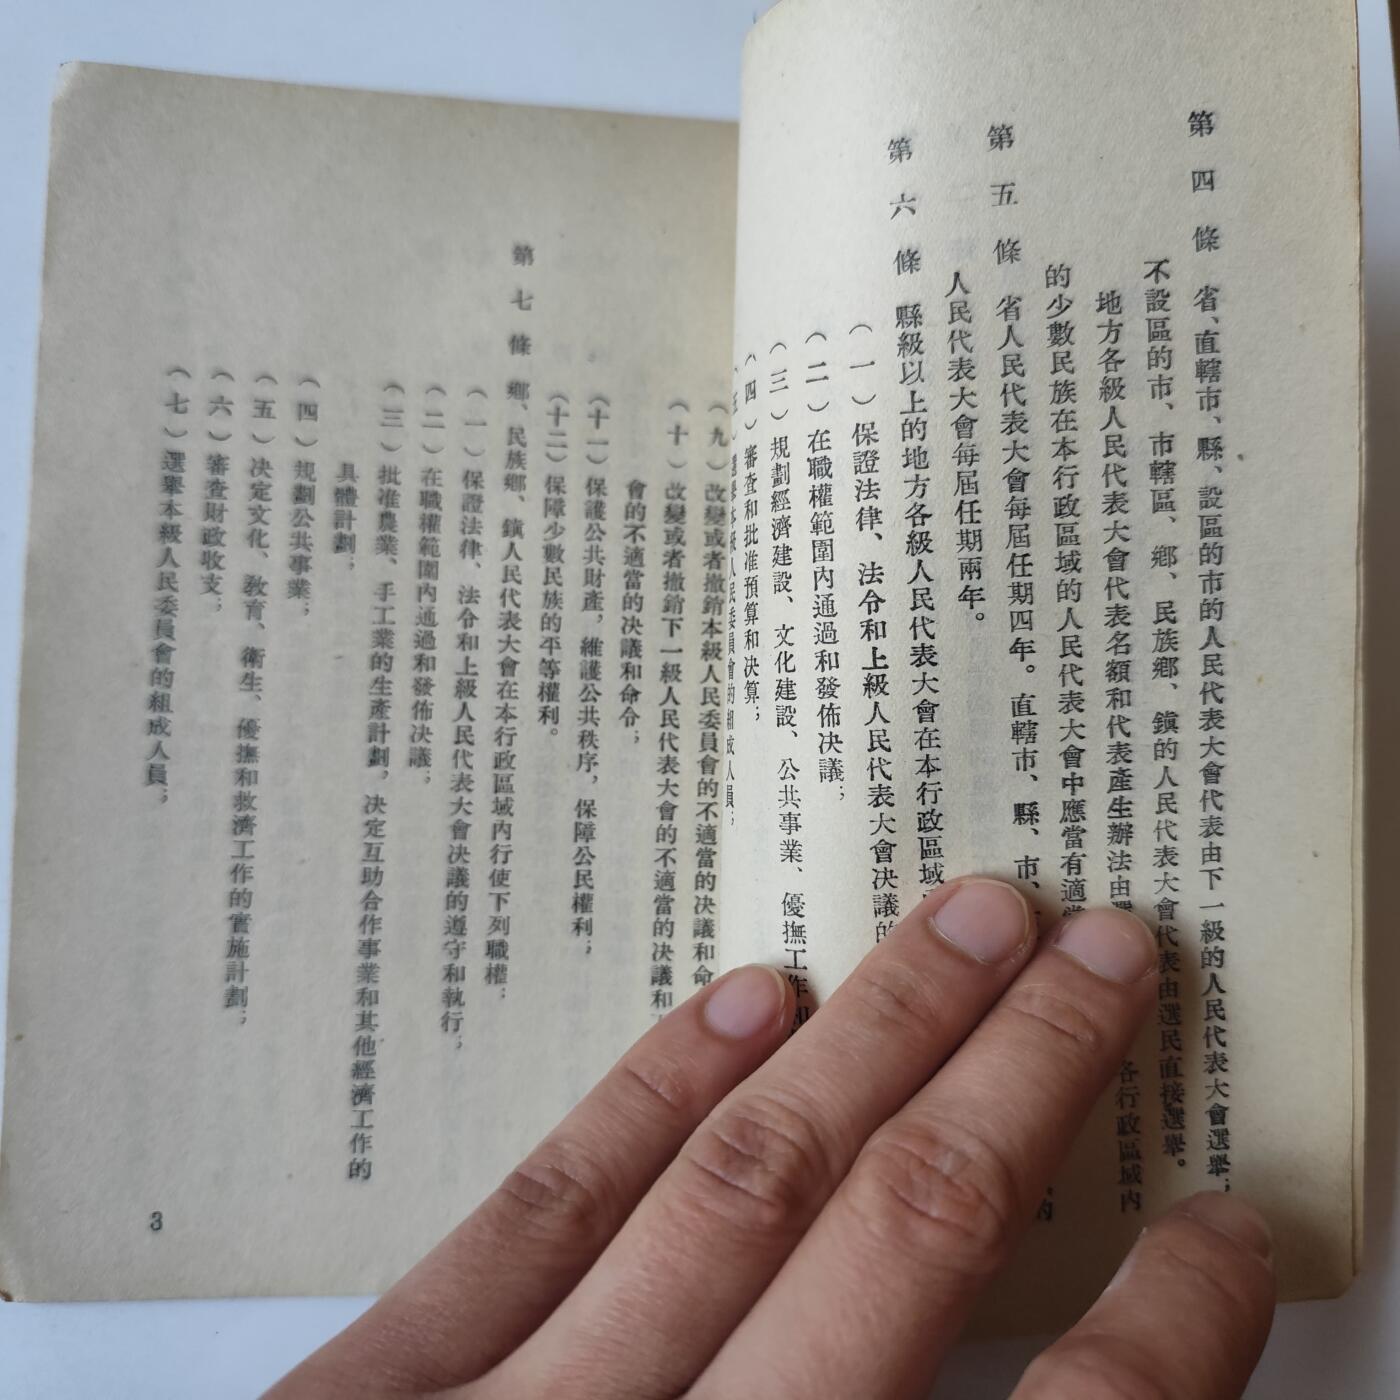 第四條 省、直轄市、縣、設區的市的人民代表大會代表由下一級的人民代表大會選舉；
不設區的市、市轄區、鄉、民族鄉、鎮的人民代表大會代表由選民直接選舉。
地方各級人民代表大會代表名額和代表產生辦法由選 各行政區域內
的少數民族在本行政區域的人民代表大會中應當有適當 的
第五條 省人民代表大會每屆任期四年。直轄市、縣、市、
人民代表大會每屆任期兩年。
第六條 縣級以上的地方各級人民代表大會在本行政區域
（一）保證法律、法令和上級人民代表大會決議的
（二）在職權範圍內通過和發佈決議；
（三）規劃經濟建設、文化建設、公共事業、優撫工作和
（四）審查和批准預算和決算；
（五）選舉本級人民委員會的組成人員；
（九）改變或者撤銷本級人民委員會的不適當的決議和命
（十）改變或者撤銷下一級人民代表大會的不適當的決議和
會的不適當的決議和命令；
（十一）保護公共財產，維護公共秩序，保障公民權利；
（十二）保障少數民族的平等權利。
第七條 鄉、民族鄉、鎮人民代表大會在本行政區域內行使下列職權：
（一）保證法律、法令和上級人民代表大會決議的遵守和執行；
（二）在職權範圍內通過和發佈決議；
（三）批准農業、手工業的生產計劃，決定互助合作事業和其他經濟工作的
具體計劃；
（四）規劃公共事業；
（五）決定文化、教育、衛生、優撫和救濟工作的實施計劃；
（六）審查財政收支；
（七）選舉本級人民委員會的組成人員；
3